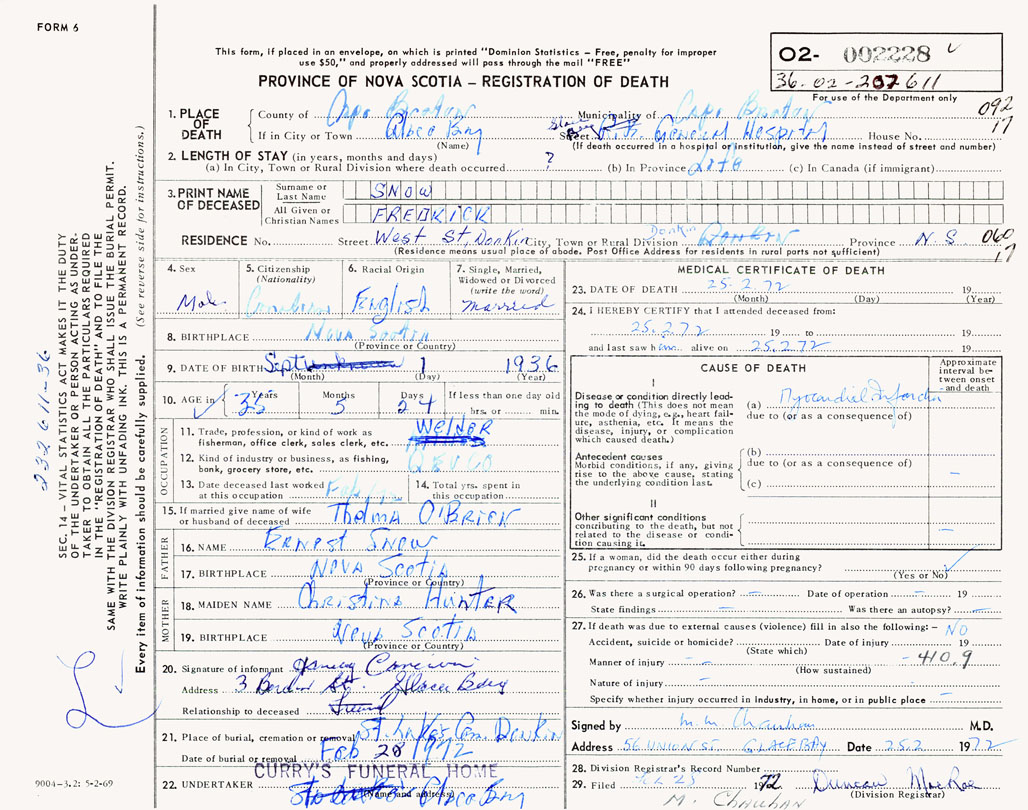 FORM 6
This form, if placed in an envelope, on which is printed "Dominion Statistics – Free, penalty for improper
use $50," and properly addressed will pass through the mail "FREE"
PROVINCE OF NOVA SCOTIA – REGISTRATION OF DEATH
02- 002228
36.02-207611
For use of the Department only
092
17
1. PLACE OF DEATH
County of Cape Breton Municipality of Cape Breton
If in City or Town Glace Bay Street General Hospital House No.
(Name) (If death occurred in a hospital or institution, give the name instead of street and number)
2. LENGTH OF STAY (in years, months and days)
(a) In City, Town or Rural Division where death occurred ? (b) In Province Life (c) In Canada (if immigrant)
3. PRINT NAME OF DECEASED
Surname or Last Name SNOW
All Given or Christian Names FREDRICK
RESIDENCE No. Street West St, Donkin City, Town or Rural Division Donkin Province N S 060
17
(Residence means usual place of abode. Post Office Address for residents in rural parts not sufficient)
4. Sex Male
5. Citizenship (Nationality) Canadian
6. Racial Origin English
7. Single, Married, Widowed or Divorced (write the word) married
8. BIRTHPLACE Nova Scotia
(Province or Country)
9. DATE OF BIRTH Sept 1 1936
(Month) (Day) (Year)
10. AGE in Years 35 Months 5 Days 24 If less than one day old hrs. or min.
OCCUPATION
11. Trade, profession, or kind of work as fisherman, office clerk, sales clerk, etc. Welder
12. Kind of industry or business, as fishing, bank, grocery store, etc. DEVCO
13. Date deceased last worked at this occupation
14. Total yrs. spent in this occupation
15. If married give name of wife or husband of deceased Thelma O'Brien
FATHER
16. NAME Ernest Snow
17. BIRTHPLACE Nova Scotia
(Province or Country)
MOTHER
18. MAIDEN NAME Christina Hunter
19. BIRTHPLACE Nova Scotia
(Province or Country)
20. Signature of informant
Address 3 St. Glace Bay
Relationship to deceased Friend
21. Place of burial, cremation or removal St. Luke's Cem. Donkin
Date of burial or removal Feb 28 1972
CURRY'S FUNERAL HOME
22. UNDERTAKER Glace Bay
(Name and address)
MEDICAL CERTIFICATE OF DEATH
23. DATE OF DEATH 25.2.72 19
(Month) (Day) (Year)
24. I HEREBY CERTIFY that I attended deceased from:
25.2.72 19 to 19
and last saw him alive on 25.2.72 19
CAUSE OF DEATH
Approximate interval between onset and death
I
Disease or condition directly leading to death (This does not mean the mode of dying, e.g., heart failure, asthenia, etc. It means the disease, injury, or complication which caused death.)
(a) Myocardial Infarction
due to (or as a consequence of)
Antecedent causes
Morbid conditions, if any, giving rise to the above cause, stating the underlying condition last.
(b)
due to (or as a consequence of)
(c)
II
Other significant conditions contributing to the death, but not related to the disease or condition causing it.
25. If a woman, did the death occur either during pregnancy or within 90 days following pregnancy?
(Yes or No)
26. Was there a surgical operation? – Date of operation – 19
State findings – Was there an autopsy? –
27. If death was due to external causes (violence) fill in also the following: – NO
Accident, suicide or homicide? Date of injury 19
(State which)
Manner of injury – – 410.9
(How sustained)
Nature of injury –
Specify whether injury occurred in industry, in home, or in public place –
Signed by M. M. Chauhan M.D.
Address 56 UNION ST GLACE BAY Date 25.2 1972
28. Division Registrar's Record Number
29. Filed 1972 Duncan MacRae
(Division Registrar)
M. Chauhan
232611-36
SEC. 14 – VITAL STATISTICS ACT MAKES IT THE DUTY
OF THE UNDERTAKER OR PERSON ACTING AS UNDERTAKER
TO OBTAIN ALL THE PARTICULARS REQUIRED
IN THE "REGISTRATION OF DEATH" AND TO FILE THE
SAME WITH THE DIVISION REGISTRAR WHO SHALL ISSUE THE BURIAL PERMIT.
WRITE PLAINLY WITH UNFADING INK. THIS IS A PERMANENT RECORD.
Every item of information should be carefully supplied. (See reverse side for instructions.)
9004–3.2: 5-2-69